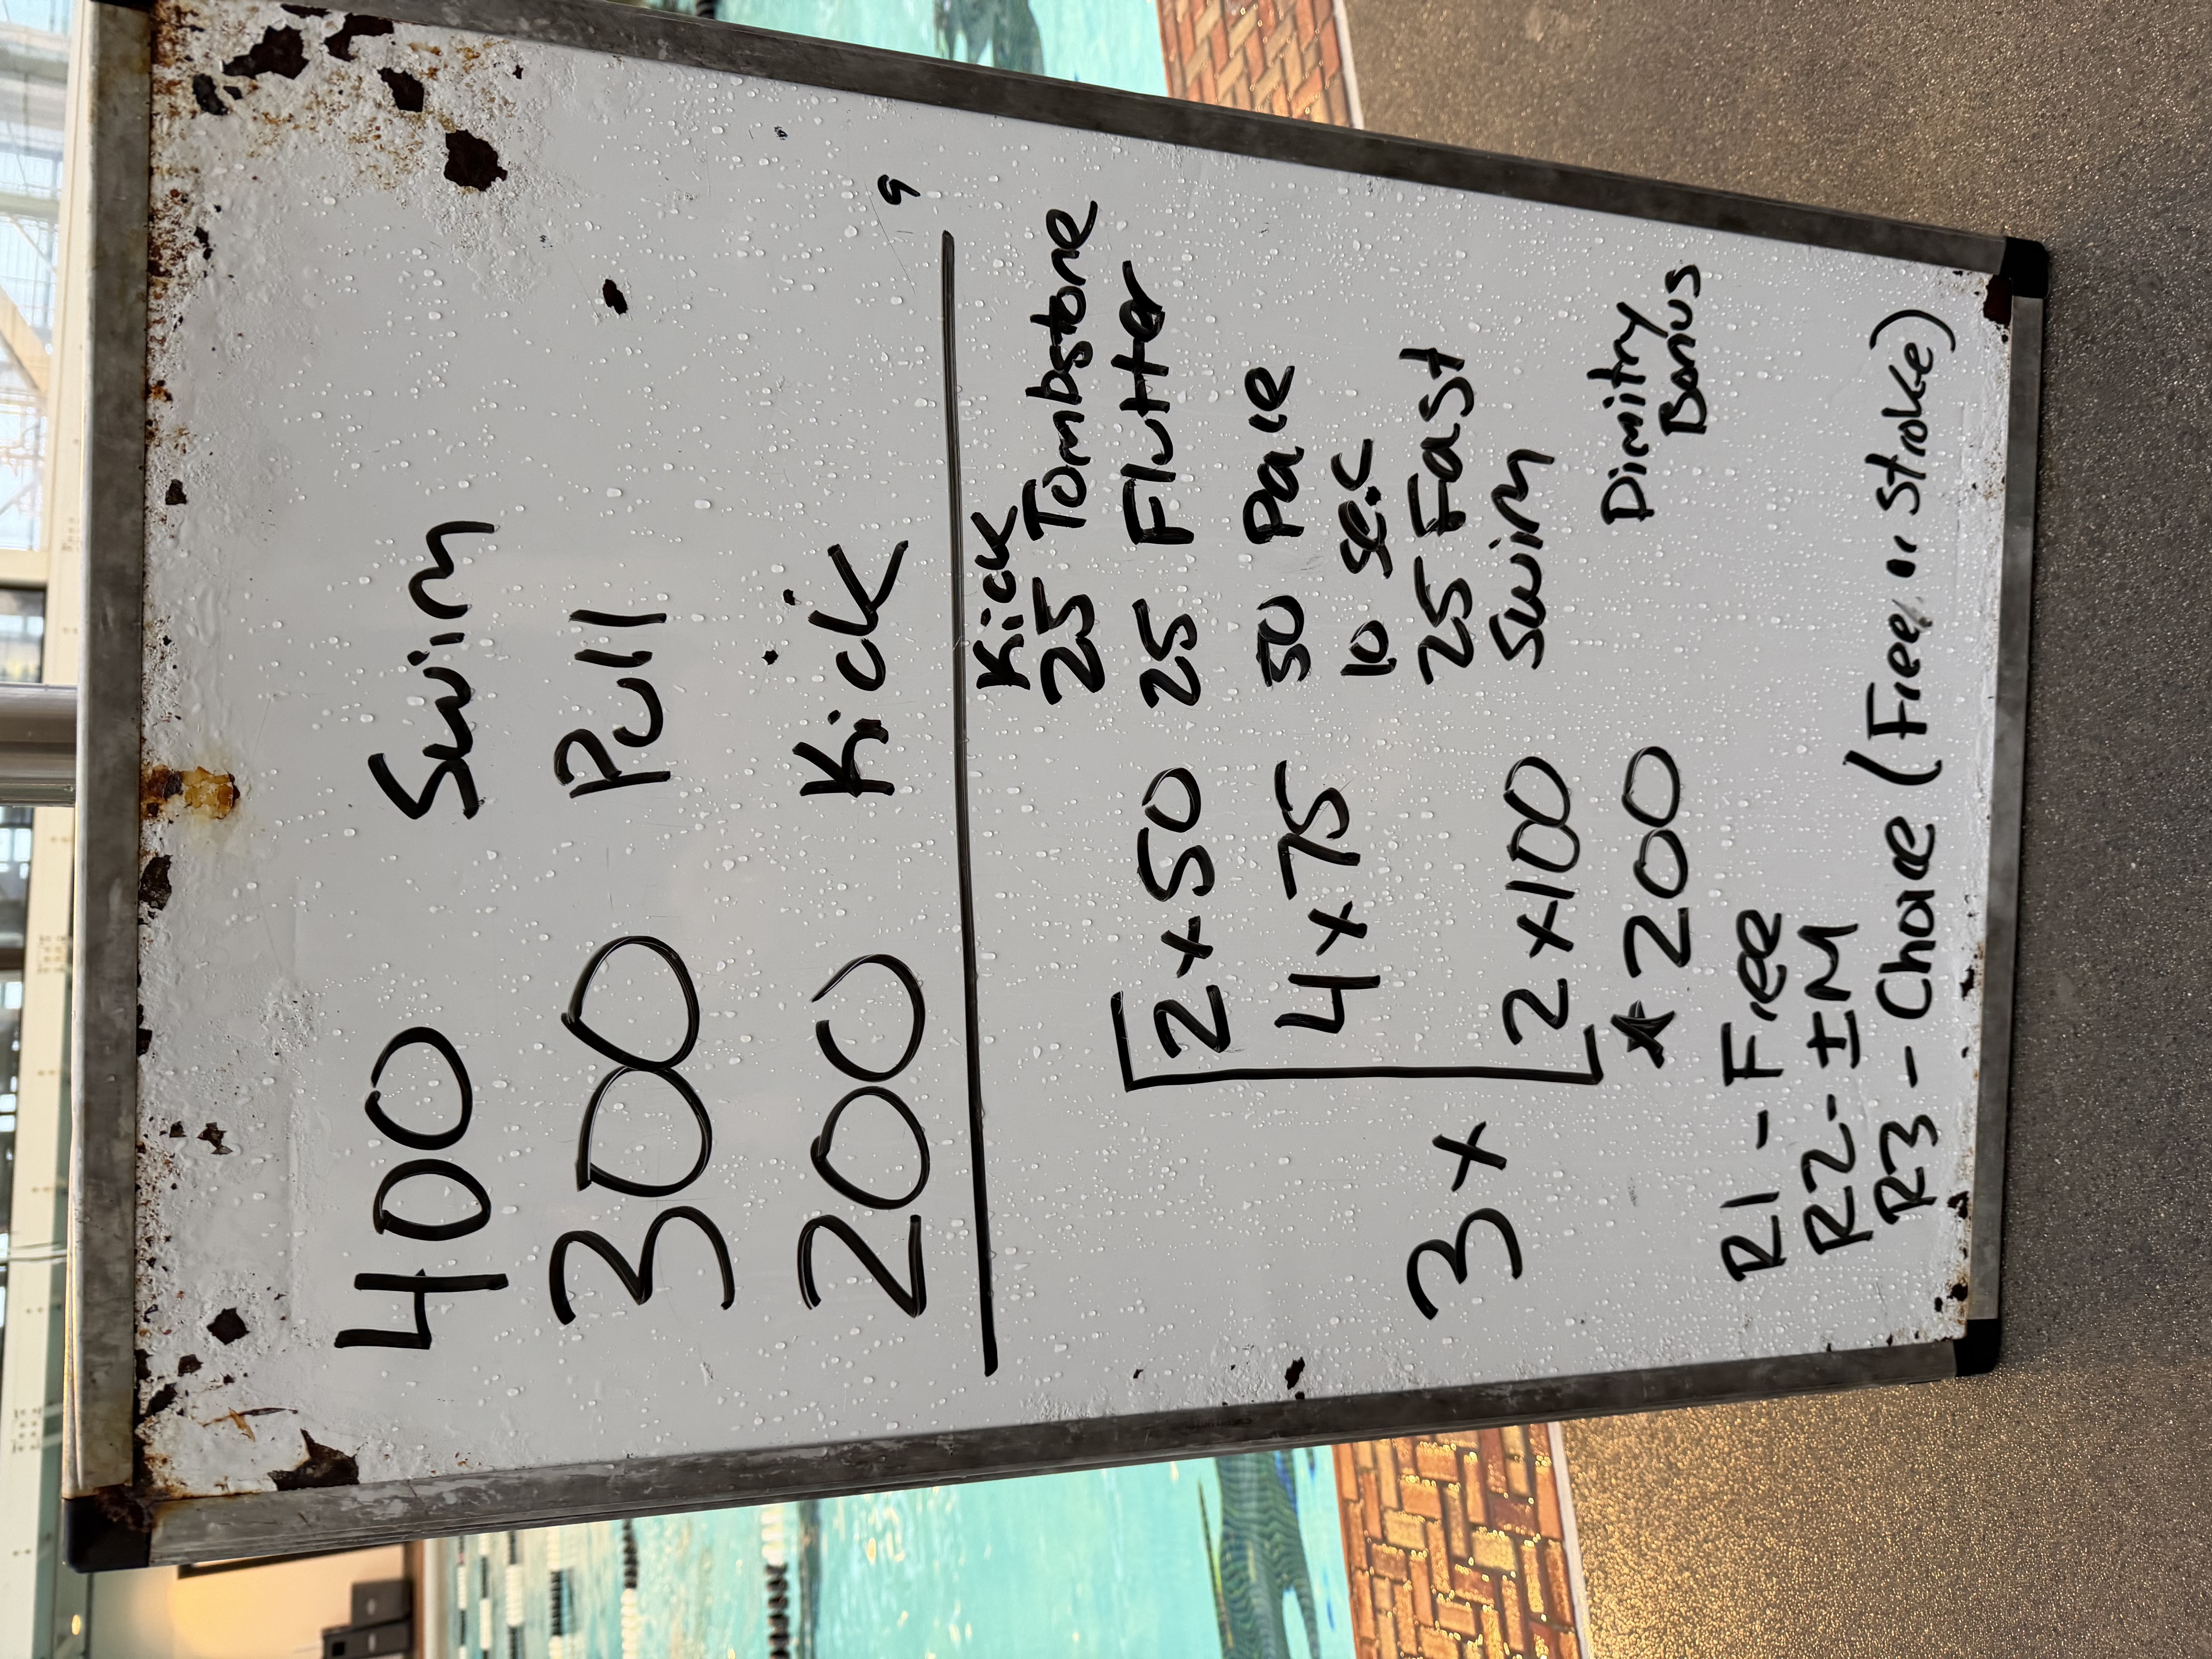 400 Swim
300 Pull
200 Kick
Kick
25 Tombstone
2x50 25 Flutter
4x75 50 Pace
10 sec
25 Fast
3x
2x100 Swim
*200 Dimitry
Bonus
R1 - Free
R2 - IM
R3 - Choice (Free or Stroke)